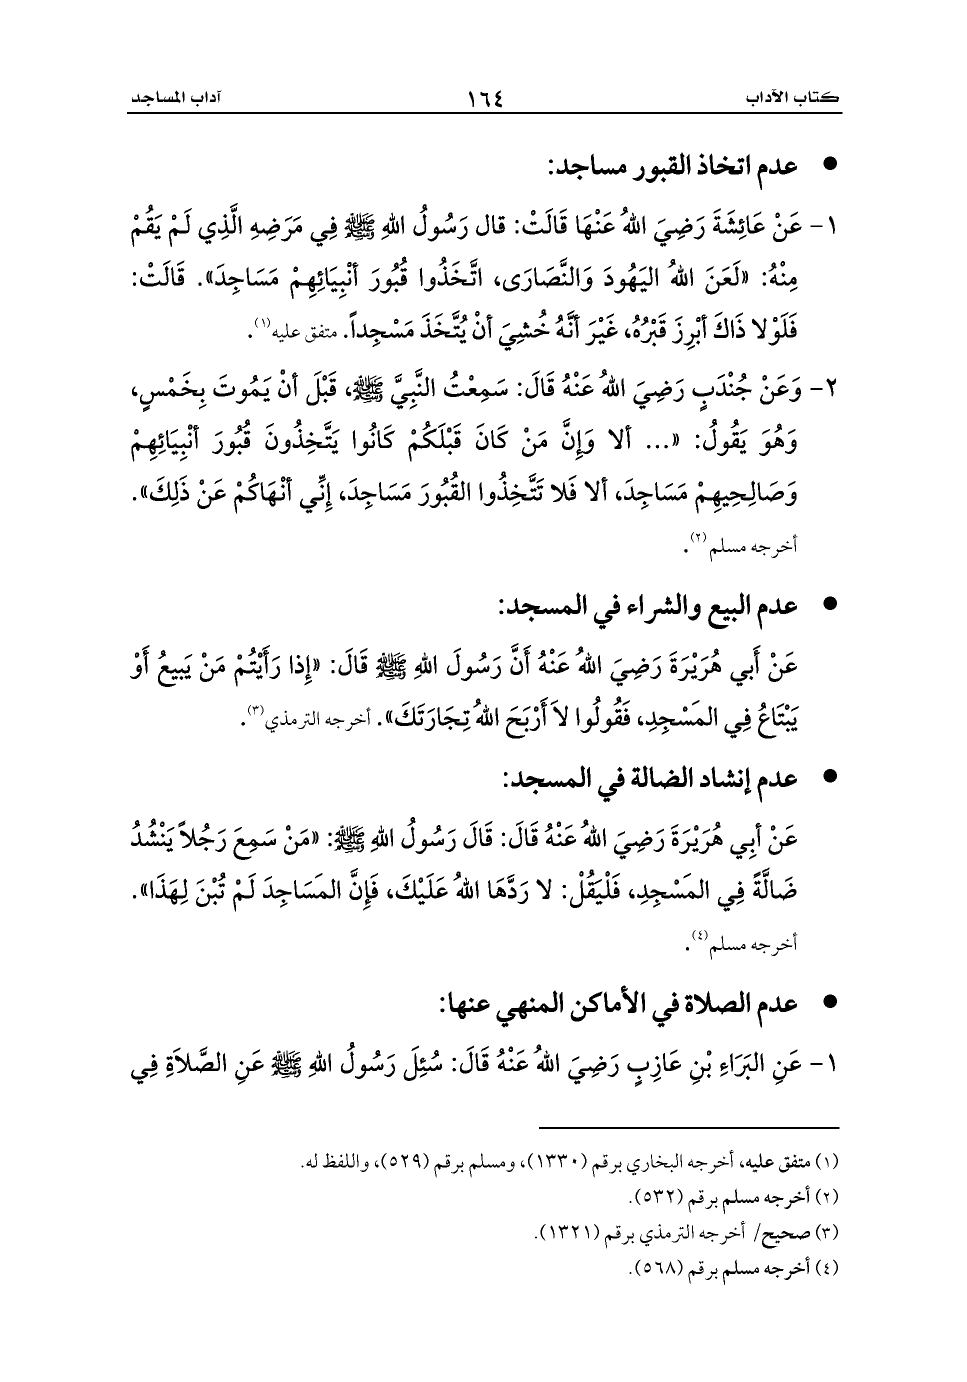 كتاب الآداب ١٦٤ آداب المساجد
● عدم اتخاذ القبور مساجد:
١- عَنْ عَائِشَةَ رَضِيَ اللهُ عَنْهَا قَالَتْ: قال رَسُولُ اللهِ ﷺ فِي مَرَضِهِ الَّذِي لَمْ يَقُمْ
مِنْهُ: «لَعَنَ اللهُ اليَهُودَ وَالنَّصَارَى، اتَّخَذُوا قُبُورَ أنْبِيَائِهِمْ مَسَاجِدَ». قَالَتْ:
فَلَوْلا ذَاكَ أبْرِزَ قَبْرُهُ، غَيْرَ أنَّهُ خُشِيَ أنْ يُتَّخَذَ مَسْجِداً. متفق عليه(١).
٢- وَعَنْ جُنْدَبٍ رَضِيَ اللهُ عَنْهُ قَالَ: سَمِعْتُ النَّبِيَّ ﷺ، قَبْلَ أنْ يَمُوتَ بِخَمْسٍ،
وَهُوَ يَقُولُ: «... ألا وَإِنَّ مَنْ كَانَ قَبْلَكُمْ كَانُوا يَتَّخِذُونَ قُبُورَ أنْبِيَائِهِمْ
وَصَالِحِيهِمْ مَسَاجِدَ، ألا فَلا تَتَّخِذُوا القُبُورَ مَسَاجِدَ، إِنِّي أنْهَاكُمْ عَنْ ذَلِكَ».
أخرجه مسلم(٢).
● عدم البيع والشراء في المسجد:
عَنْ أَبي هُرَيْرَةَ رَضِيَ اللهُ عَنْهُ أَنَّ رَسُولَ اللهِ ﷺ قَالَ: «إِذا رَأَيْتُمْ مَنْ يَبِيعُ أَوْ
يَبْتَاعُ فِي المَسْجِدِ، فَقُولُوا لاَ أَرْبَحَ اللهُ تِجَارَتَكَ». أخرجه الترمذي(٣).
● عدم إنشاد الضالة في المسجد:
عَنْ أبِي هُرَيْرَةَ رَضِيَ اللهُ عَنْهُ قَالَ: قَالَ رَسُولُ اللهِ ﷺ: «مَنْ سَمِعَ رَجُلاً يَنْشُدُ
ضَالَّةً فِي المَسْجِدِ، فَلْيَقُلْ: لا رَدَّهَا اللهُ عَلَيْكَ، فَإِنَّ المَسَاجِدَ لَمْ تُبْنَ لِهَذَا».
أخرجه مسلم(٤).
● عدم الصلاة في الأماكن المنهي عنها:
١- عَنِ البَرَاءِ بْنِ عَازِبٍ رَضِيَ اللهُ عَنْهُ قَالَ: سُئِلَ رَسُولُ اللهِ ﷺ عَنِ الصَّلاَةِ فِي
(١) متفق عليه، أخرجه البخاري برقم (١٣٣٠)، ومسلم برقم (٥٢٩)، واللفظ له.
(٢) أخرجه مسلم برقم (٥٣٢).
(٣) صحيح/ أخرجه الترمذي برقم (١٣٢١).
(٤) أخرجه مسلم برقم (٥٦٨).